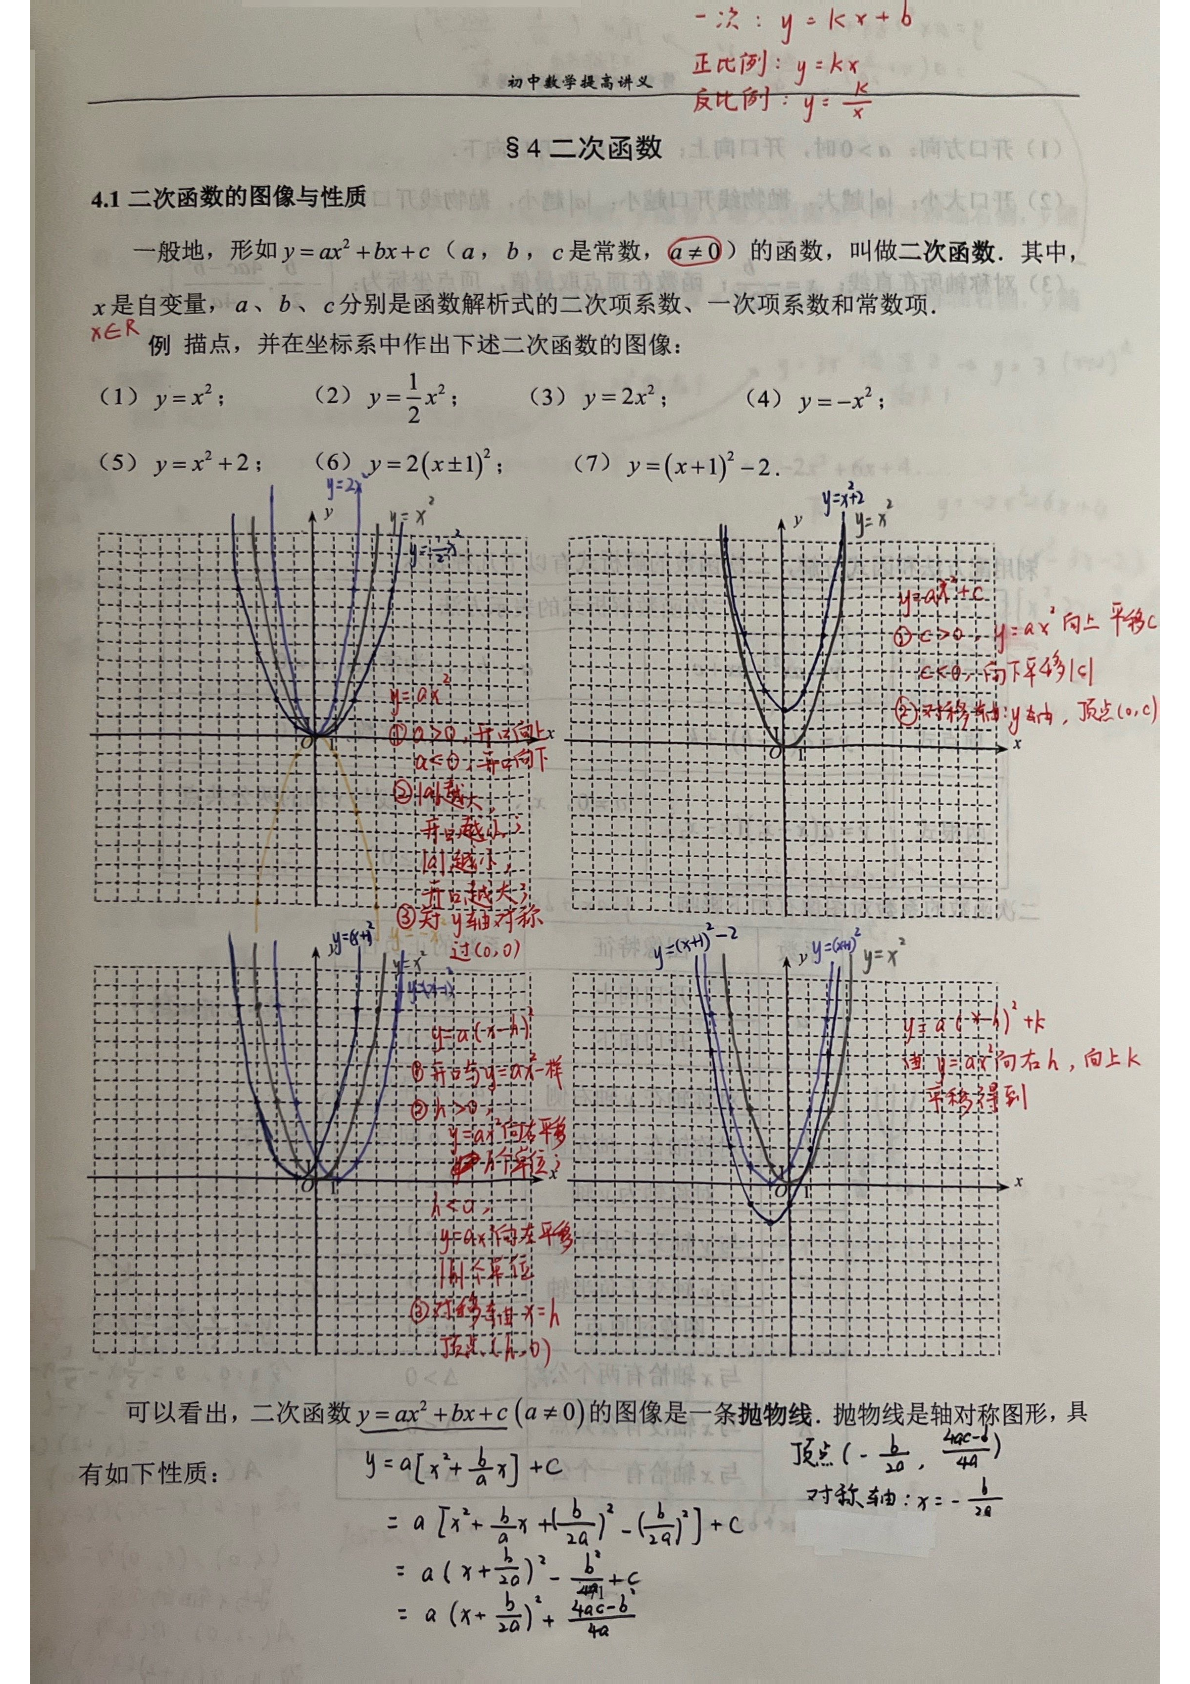 一次：y = kx + b
正比例：y = kx
反比例：y = k/x
初中数学提高讲义
§4 二次函数
4.1 二次函数的图像与性质
一般地，形如 y = ax² + bx + c（a，b，c 是常数，a ≠ 0）的函数，叫做二次函数．其中，
x 是自变量，a、b、c 分别是函数解析式的二次项系数、一次项系数和常数项．
x∈R
例 描点，并在坐标系中作出下述二次函数的图像：
（1）y = x²；（2）y = 1/2 x²；（3）y = 2x²；（4）y = −x²；
（5）y = x² + 2；（6）y = 2(x ± 1)²；（7）y = (x + 1)² − 2．
y=2x²
y = x²
y=1/2x²
y
x
O 1
y=ax²
① a>0，开口向上
a<0，开口向下
② |a|越大，
开口越小；
|a|越小，
开口越大；
③ 关于y轴对称
过(0,0)
y=-x²
y=x²+2
y=x²
y
x
O 1
y=ax²+c
① c>0，y=ax²向上平移c
c<0，向下平移|c|
② 对称轴：y轴，顶点(0,c)
y=(x+1)²
y=x²
y=(x-1)²
y
x
O 1
y=a(x-h)²
① 开口与y=ax²一样
② h>0，
y=ax²向右平移
h个单位；
h<0，
y=ax²向左平移
|h|个单位
③ 对称轴x=h
顶点(h,0)
y=(x+1)²-2
y=(x+1)²
y=x²
y
x
O 1
y=a(x-h)²+k
由y=ax²向右h，向上k
平移得到
可以看出，二次函数 y = ax² + bx + c (a ≠ 0) 的图像是一条抛物线．抛物线是轴对称图形，具
有如下性质：
y = a[x² + b/a x] + c
= a[x² + b/a x + (b/2a)² - (b/2a)²] + c
= a(x + b/2a)² - b²/4a + c
= a(x + b/2a)² + 4ac-b²/4a
顶点(- b/2a, 4ac-b²/4a)
对称轴：x = - b/2a